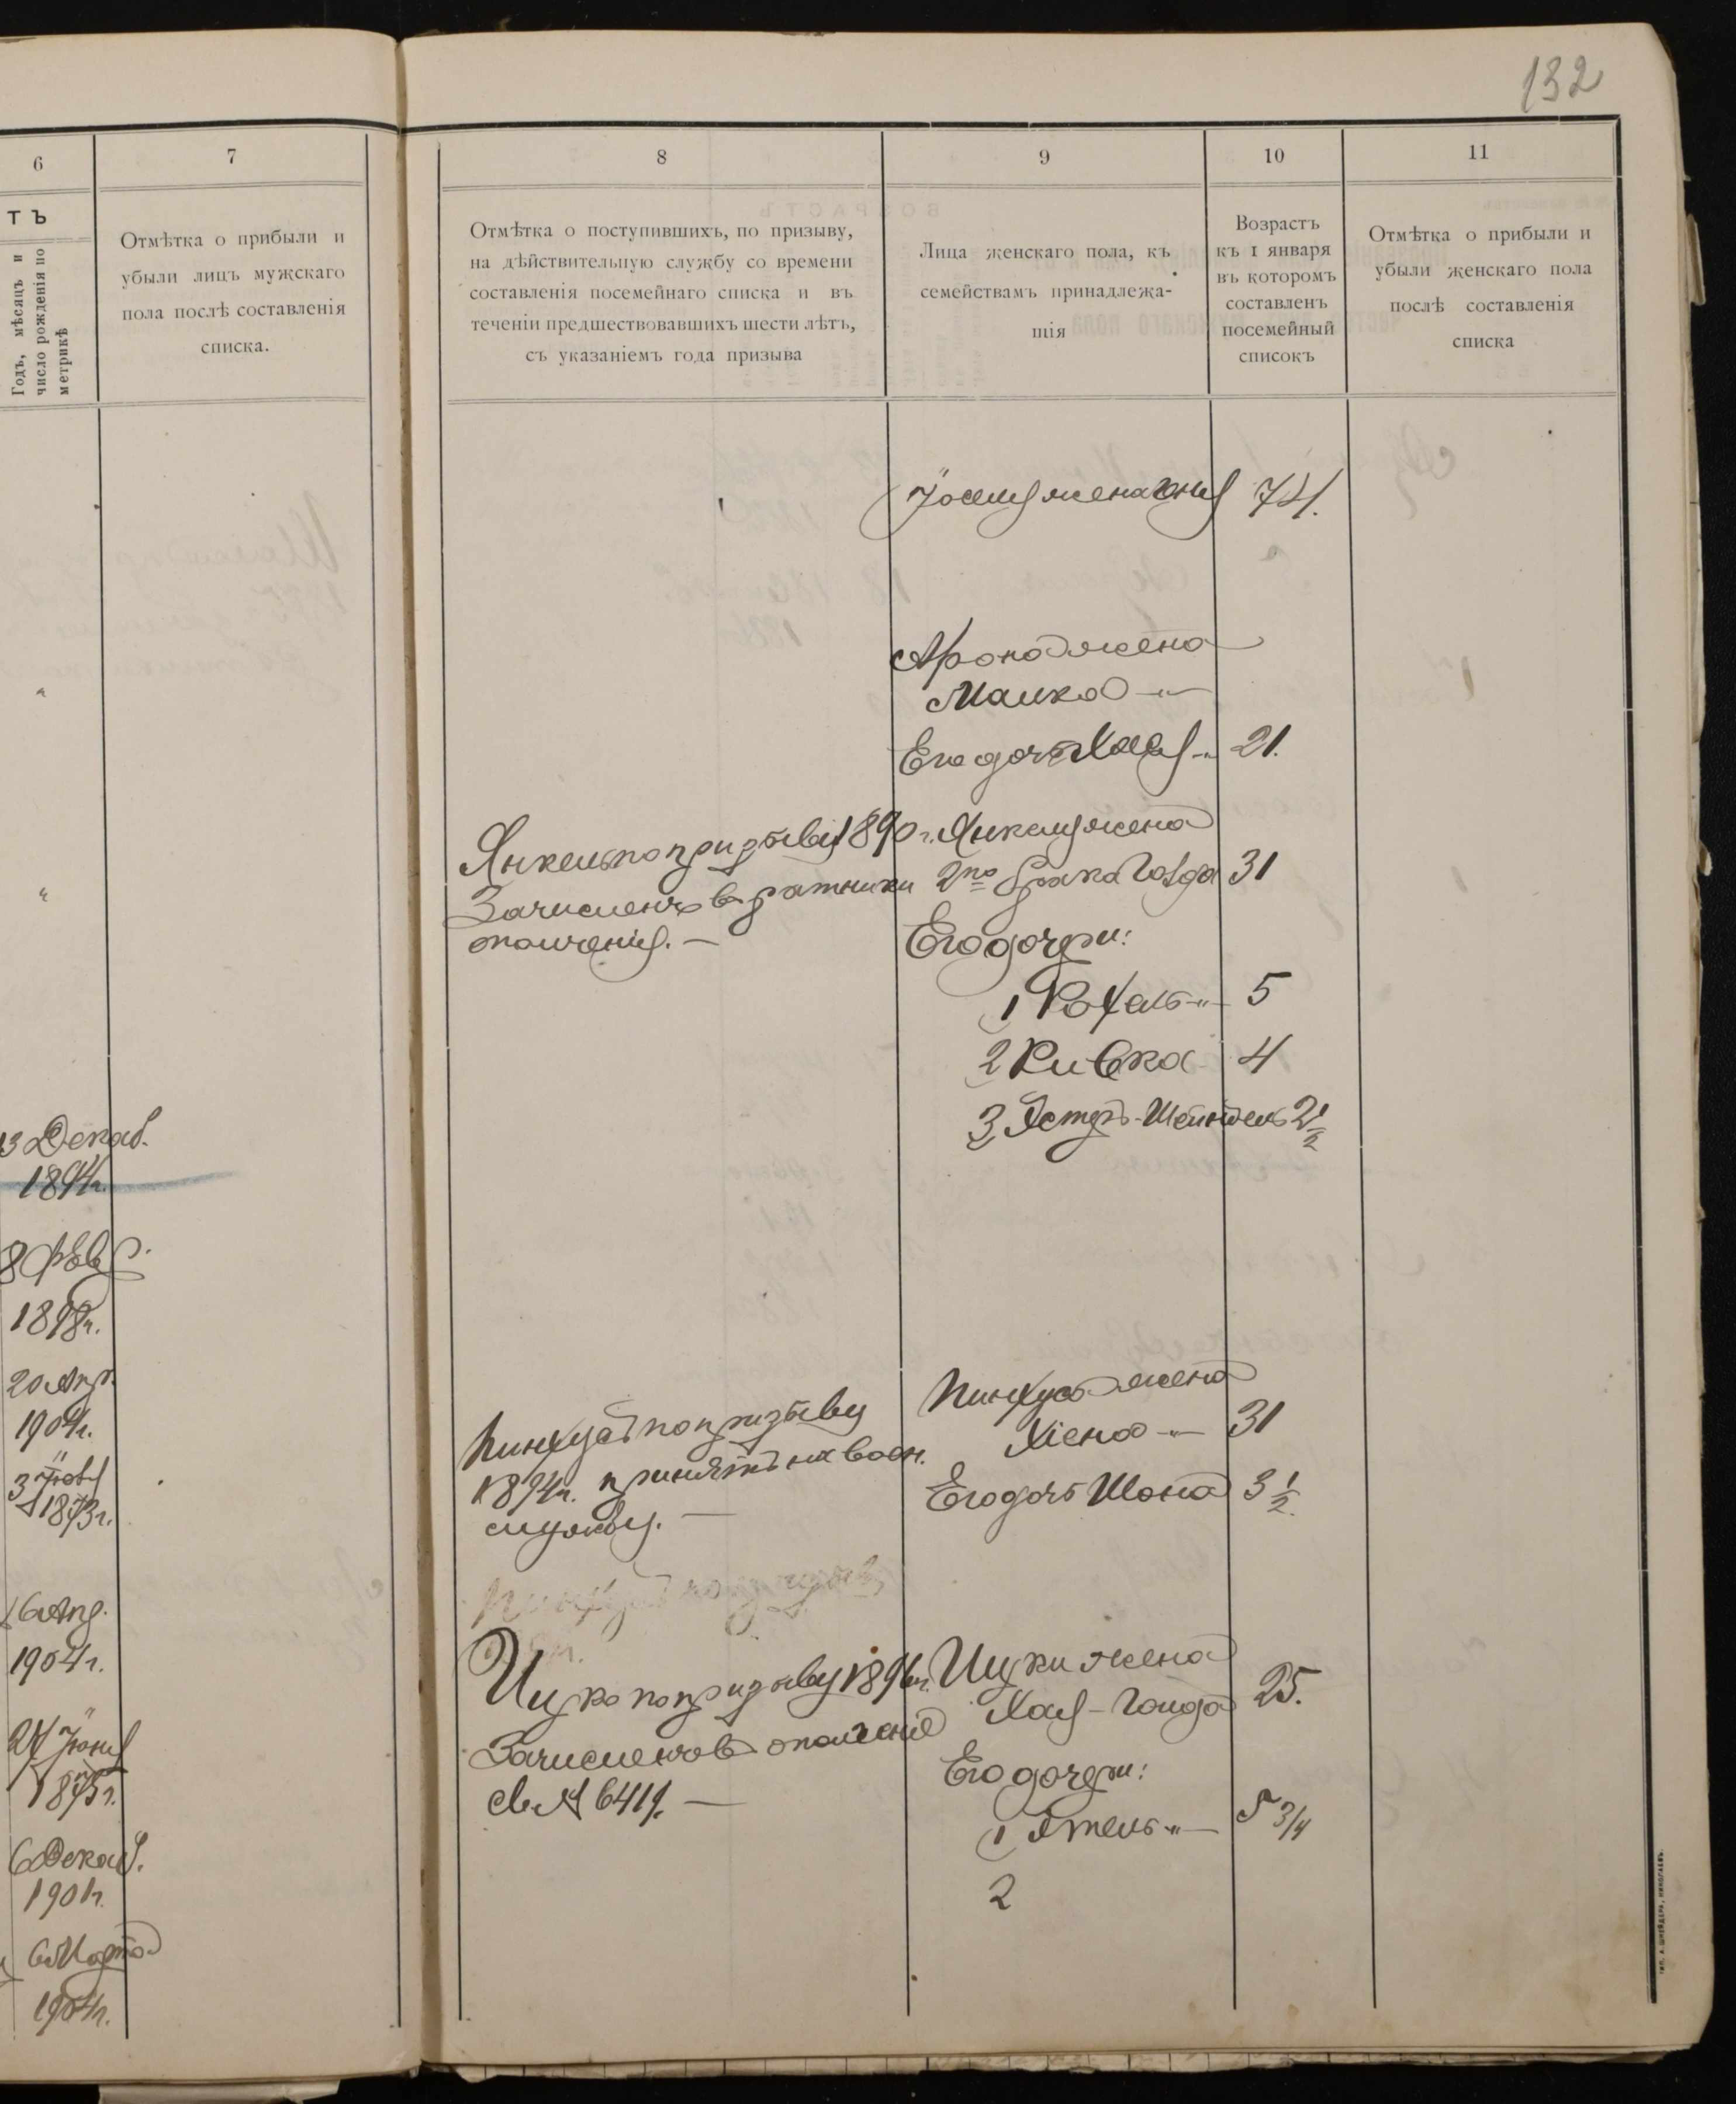 132
6
7
8
9
10
11
ТЪ
Годъ, мѣсяцъ и
число рожденія по
метрикѣ
Отмѣтка о прибыли и
убыли лицъ мужскаго
пола послѣ составленія
списка.
Отмѣтка о поступившихъ, по призыву,
на дѣйствительную службу со времени
составленія посемейнаго списка и въ
теченіи предшествовавшихъ шести лѣтъ,
съ указаніемъ года призыва
Лица женскаго пола, къ
семействамъ принадлежа-
щія
Возрастъ
къ 1 января
въ которомъ
составленъ
посемейный
списокъ
Отмѣтка о прибыли и
убыли женскаго пола
послѣ составленія
списка
жена 74.
Арона жена
Малка -"-
Его дочь Хая -"- 21.
Янкель по призыву 1890 г.
Зачисленъ в ратники
ополченія. —
Янкеля жена
2го брака Голда 31
Его дочери:
1 Рохель -"- 5
2 Ривка 4
3 Эстеръ-Шейндель 2 1/2
3 Декаб.
1894 г.
8 Фѣвр.
1898 г.
20 Апр.
1904 г.
3
1873 г.
16 Апр.
1904 г.
27 Іюня
1875 г.
6 Декаб.
1901 г.
6 Марта
1904 г.
Пинхусъ по призыву
1894 г. принятъ на воен.
службу. —
Пинхуса жена
Хiена -"- 31
Его дочь Шона 3 1/2
Пинхусъ по призыву
Ицко по призыву 1896 г.
Зачисленъ в ополченіе
св. № 6419. —
Ицки жена
Хая-Голда 25.
Его дочери:
1 Этель -"- 5 3/4
2